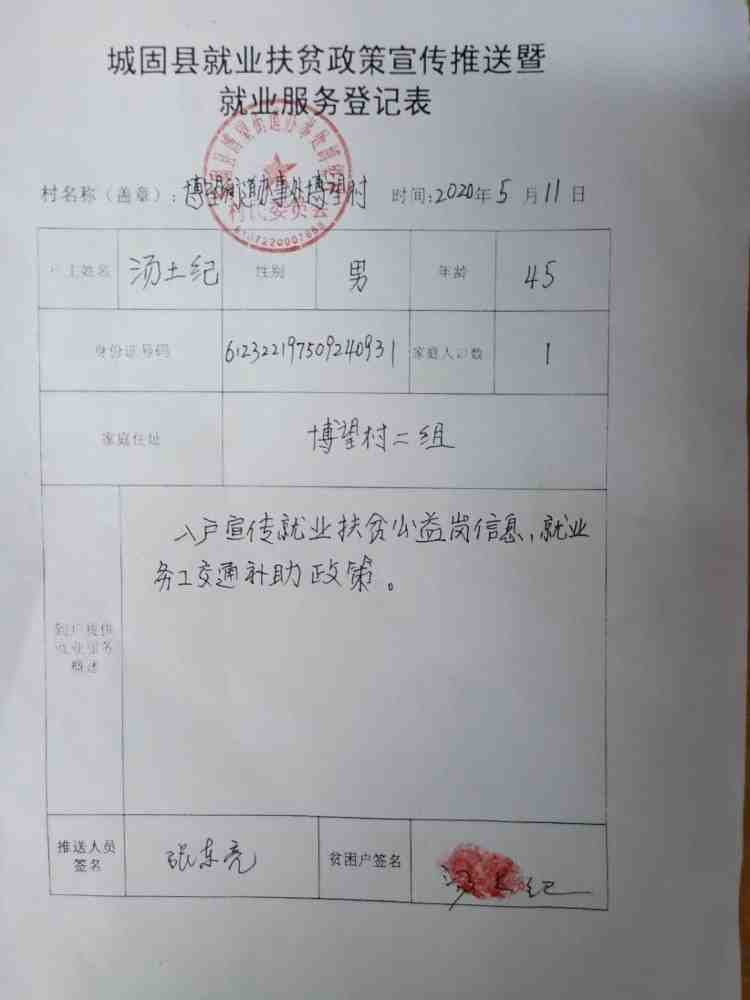 城固县就业扶贫政策宣传推送暨
就业服务登记表
村名称（盖章）：博望街道办事处博望村 时间:2020年5月11日
户主姓名 汤土纪 性别 男 年龄 45
身份证号码 612322197509240931 家庭人口数 1
家庭住址 博望村二组
入户宣传就业扶贫公益岗信息,就业
务工交通补助政策。
到户提供
就业服务
概述
推送人员
签名
张东亮
贫困户签名
汤土纪
村民委员会